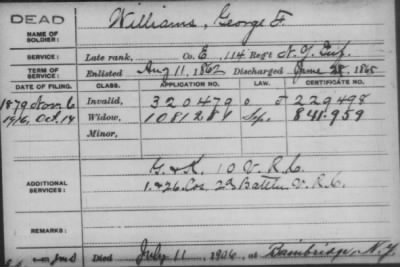 DEAD
NAME OF SOLDIER: Williams, George F.
SERVICE: Late rank, Co. E, 114 Reg't N.Y. Inf.
TERM OF SERVICE: Enlisted Aug 11, 1862 Discharged June 28, 1865
DATE OF FILING. CLASS. APPLICATION NO. LAW. CERTIFICATE NO.
1879 Nov. 6 Invalid, 320479 229498
1916, Oct. 14 Widow, 1081281 841.959
Minor,
G. & K. 10 V.R.C.
ADDITIONAL SERVICES: 1. & 26. Cos. 2d Battln V.R.C.
REMARKS:
Died July 11 1906, at Bainbridge, N.Y.